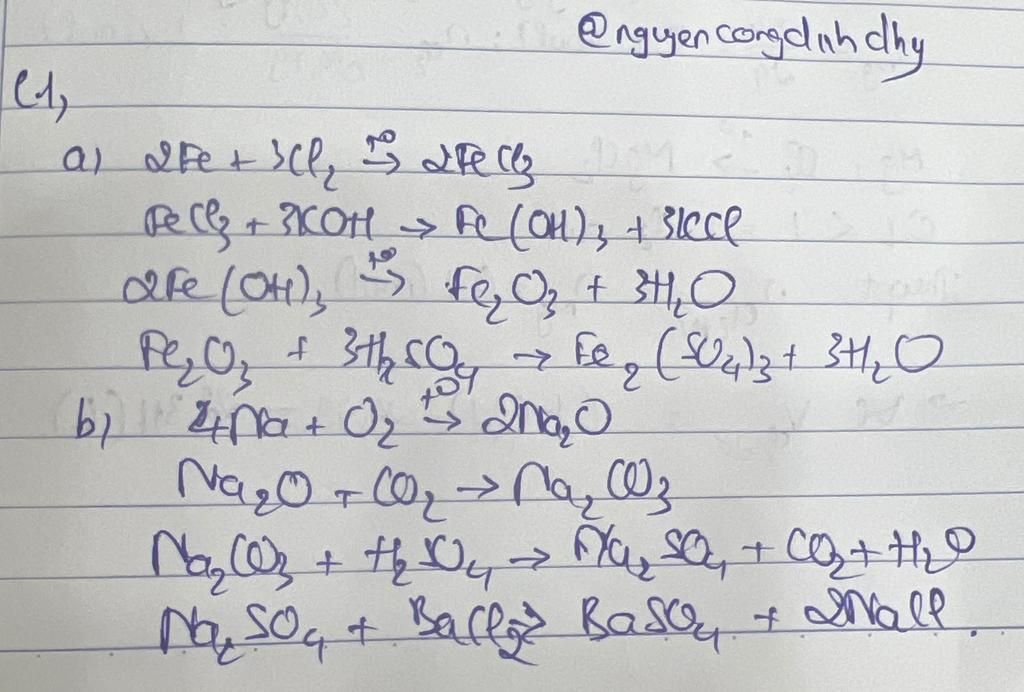 @nguyencongdnhdhy
C1,
a) 2Fe + 3Cl₂ t°→ 2FeCl₃
FeCl₃ + 3KOH → Fe(OH)₃ + 3KCl
2Fe(OH)₃ t°→ Fe₂O₃ + 3H₂O
Fe₂O₃ + 3H₂SO₄ → Fe₂(SO₄)₃ + 3H₂O
b) 4Na + O₂ t°→ 2Na₂O
Na₂O + CO₂ → Na₂CO₃
Na₂CO₃ + H₂SO₄ → Na₂SO₄ + CO₂ + H₂O
Na₂SO₄ + BaCl₂ → BaSO₄ + 2NaCl.